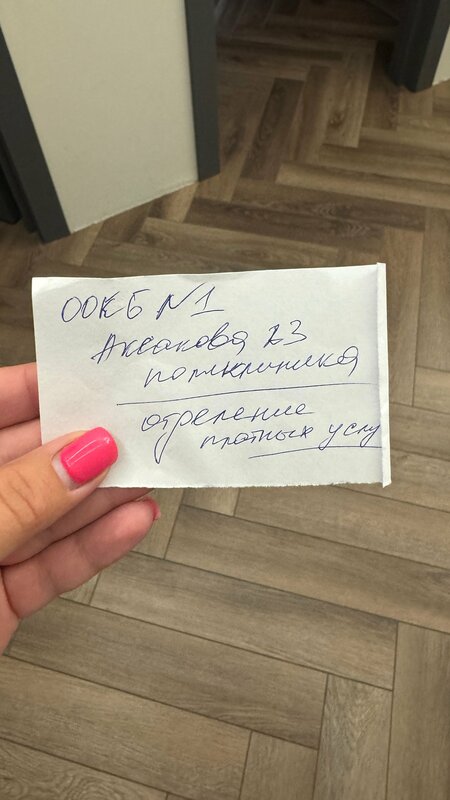 ООКБ №1
Аксакова 23
поликлиника
отделение
платных услу